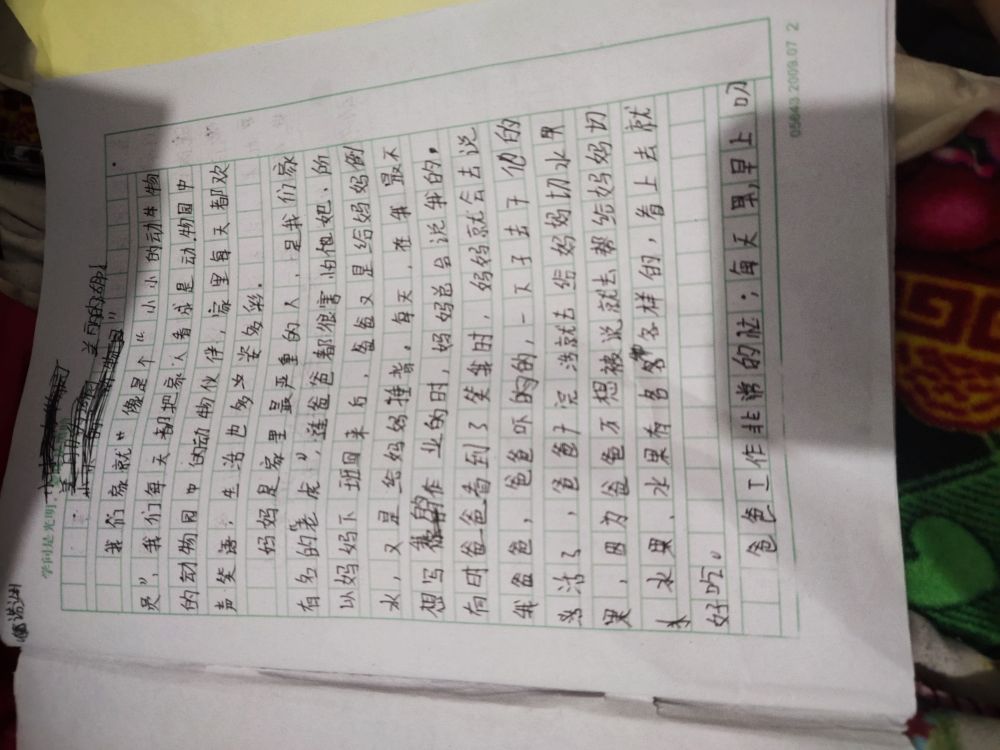 学问是光明
我们家就"像是个"小小的动物
员",我们每天都把家人看成是动物园中
的动物园中的动物伙伴,家里每天都欢
声笑语,生活也多多姿多彩。
妈妈是家里最严重的人,是我们家
有名的"老虎",连爸爸都很害怕他她,所
以妈妈下班回来后,爸爸又是给妈妈倒
水,又是给妈妈捶背。每天,在我最不
想写作业的时,妈妈总会说我的。
有时爸爸看到了笑我时,妈妈就会去说
我爸爸,爸爸吓的的,一下子去干他的
活了,爸爸干完活就去给妈妈切水果
果,因为爸爸不想被说就去帮给妈妈切
水果、水果有各各样的,看上去就
好吃。
爸爸工作非常的忙;每天早上
05643 2009.07 2